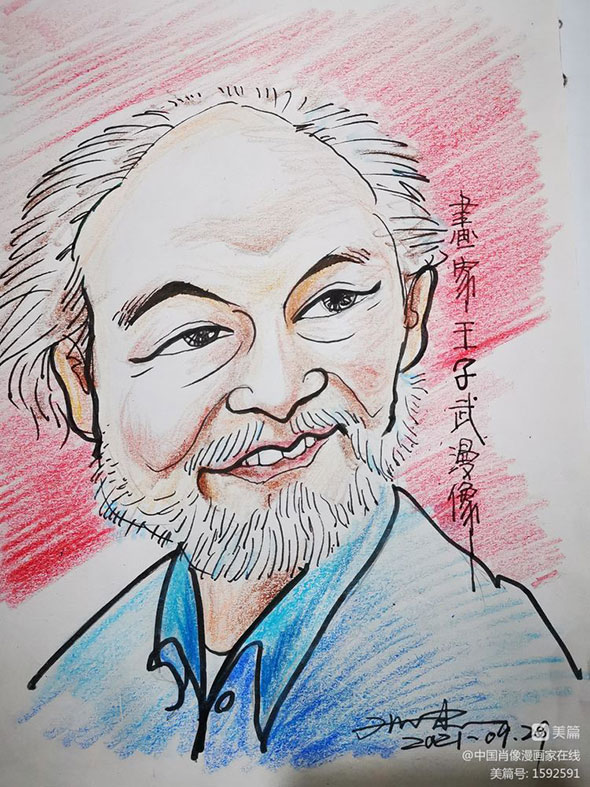 畫家王子武漫像
2021-09.29
美篇
@中国肖像漫画家在线
美篇号: 1592591